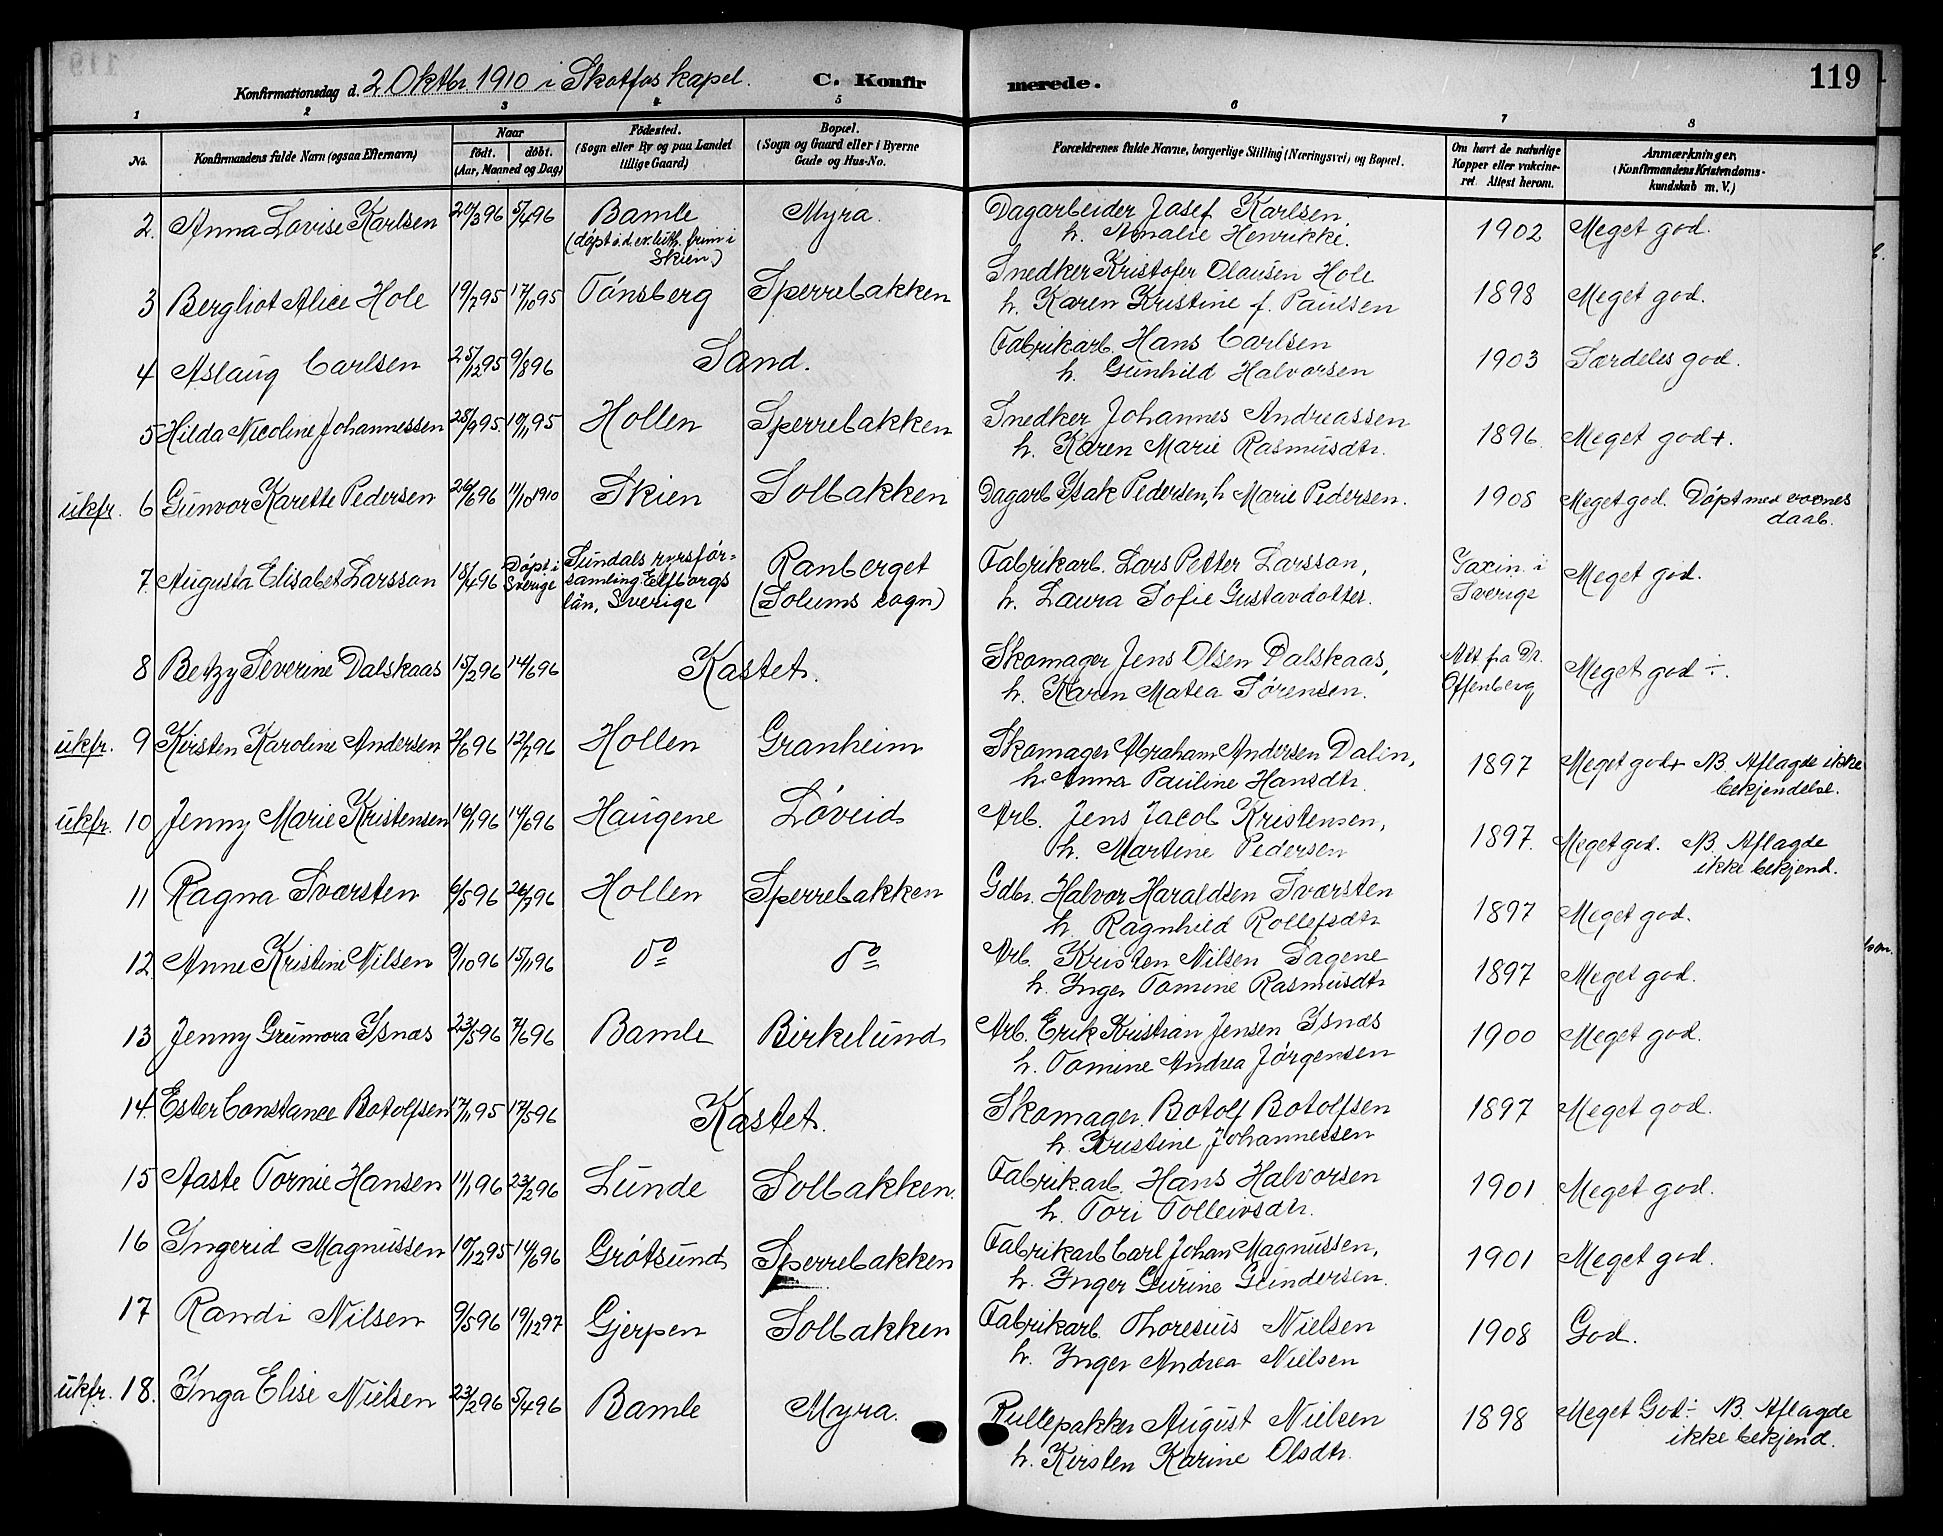 Konfirmationsdag d. 2 Oktbr. 1910 i Skotfos kapel. C. Konfirmerede. 119
1 2 3 4 5 6 7 8
No. Konfirmandens fulde Navn (ogsaa Efternavn) Naar født. døbt. (Aar, Maaned og Dag) Fødested. (Sogn eller By og paa Landet tillige Gaard) Bopæl. (Sogn og Gaard eller i Byerne Gade og Hus-No. Forældrenes fulde Navne, borgerlige Stilling (Næringsvei) og Bopæl. Om havt de naturlige Kopper eller vakcineret. Attest herom. Anmærkninger, (Konfirmandens Kristendomskundskab m. V.)
2. Anna Lovise Karlsen 20/3 96 5/4 96 Bamle Myra. Dagarbeider Josef Karlsen, 1902 Meget god.
(døpt i d. ev. luth. frim i Skien) h. Amalie Henrikke.
3 Bergliot Alice Hole 19/7 95 17/10 95 Tønsberg Sperrebakken Snedker Kristofer Olausen Hole 1898 Meget god.
h. Karen Kristine f. Paulsen
4 Aslaug Carlsen 25/12 95 9/8 96 Sand. Fabrikarb. Hans Carlsen 1903 Særdeles god.
h. Gunhild Halvorsen
5 Hilda Nicoline Johannessen 28/9 95. 10/11 95 Hollen Sperrebakken Snedker Johannes Andreassen 1896 Meget god+.
h. Karen Marie Rasmusdtr.
ukfr. 6 Gunvor Karette Pedersen 26/6 96 11/10 1910 Skien Solbakken Dagarb Isak Pedersen, h Marie Pedersen. 1908 Meget god. Døpt med voxnes daab.
7. Augusta Elisabet Larsson 18/4 96 Døpt i Sverige Sundals rvrsför=samling Elfborgs län, Sverige Ranberget (Solums sogn) Fabrikarb. Lars Petter Larsson, Vaxin. i Sverige Meget god.
h. Laura Sofie Gustavdotter.
8 Betzy Severine Dalskaas 15/2 96 14/6 96 Kastet. Skomager Jens Olsen Dalskaas, Att fra Dr. Offenberg Meget god ÷.
h. Karen Matea Sørensen.
ukfr. 9 Kirsten Karoline Andersen 2/6 96 12/7 96 Hollen Granheim Skomager Abraham Andersen Dalin, 1897 Meget god+ NB. Aflagde ikke bekjendelse.
h. Anna Pauline Hansdtr.
ukfr. 10 Jenny Marie Kristensen 16/1 96 14/6 96 Haugene Løveid Arb. Jens Jacob Kristensen, 1897. Meget god. NB. Aflagde ikke bekjend.
h. Martine Pedersen
11 Ragna Sværsten 6/5 96 26/7 96 Hollen Sperrebakken Gdbr. Halvor Haraldsen Sværsten 1897 Meget god.
h. Ragnhild Rollefsdtr
12. Anne Kristine Nilsen 9/10 96 15/11 96 do do Arb. Kristen Nilsen Dagene 1897 Meget god.
h. Inger Tomine Rasmusdtr
13 Jenny Gunnora Isnæs 23/5 96 7/6 96 Bamle Birkelund Arb. Erik Kristian Jensen Isnæs 1900 Meget god.
h. Tomine Andrea Jørgensen
14. Ester Constance Botolfsen 17/11 95 17/5 96 Kastet. Skomager Botolf Botolfsen 1897 Meget god.
h. Kristine Johannessen
15 Aaste Tornie Hansen 11/1 96 23/2 96 Lunde Solbakken. Fabrikarb. Hans Halvorsen 1901 Meget god.
h. Tori Tolleivsdtr.
16 Ingerid Magnussen 10/12 95 14/6 96 Grøtsund Sperrebakken Fabrikarb Carl Johan Magnussen, 1901 Meget god.
h. Inger Gurine Gundersen.
17 Randi Nilsen 9/5 96 19/12 97 Gjerpen Solbakken Fabrikarb. Thoresius Nielsen 1908 God.
h. Inger Andrea Nielsen
ukfr. 18. Inga Elise Nielsen 23/2 96 5/4 96 Bamle Myra. Rullepakker August Nielsen 1898 Meget God÷ NB. Aflagde ikke bekjend.
h. Kirsten Karine Olsdtr.